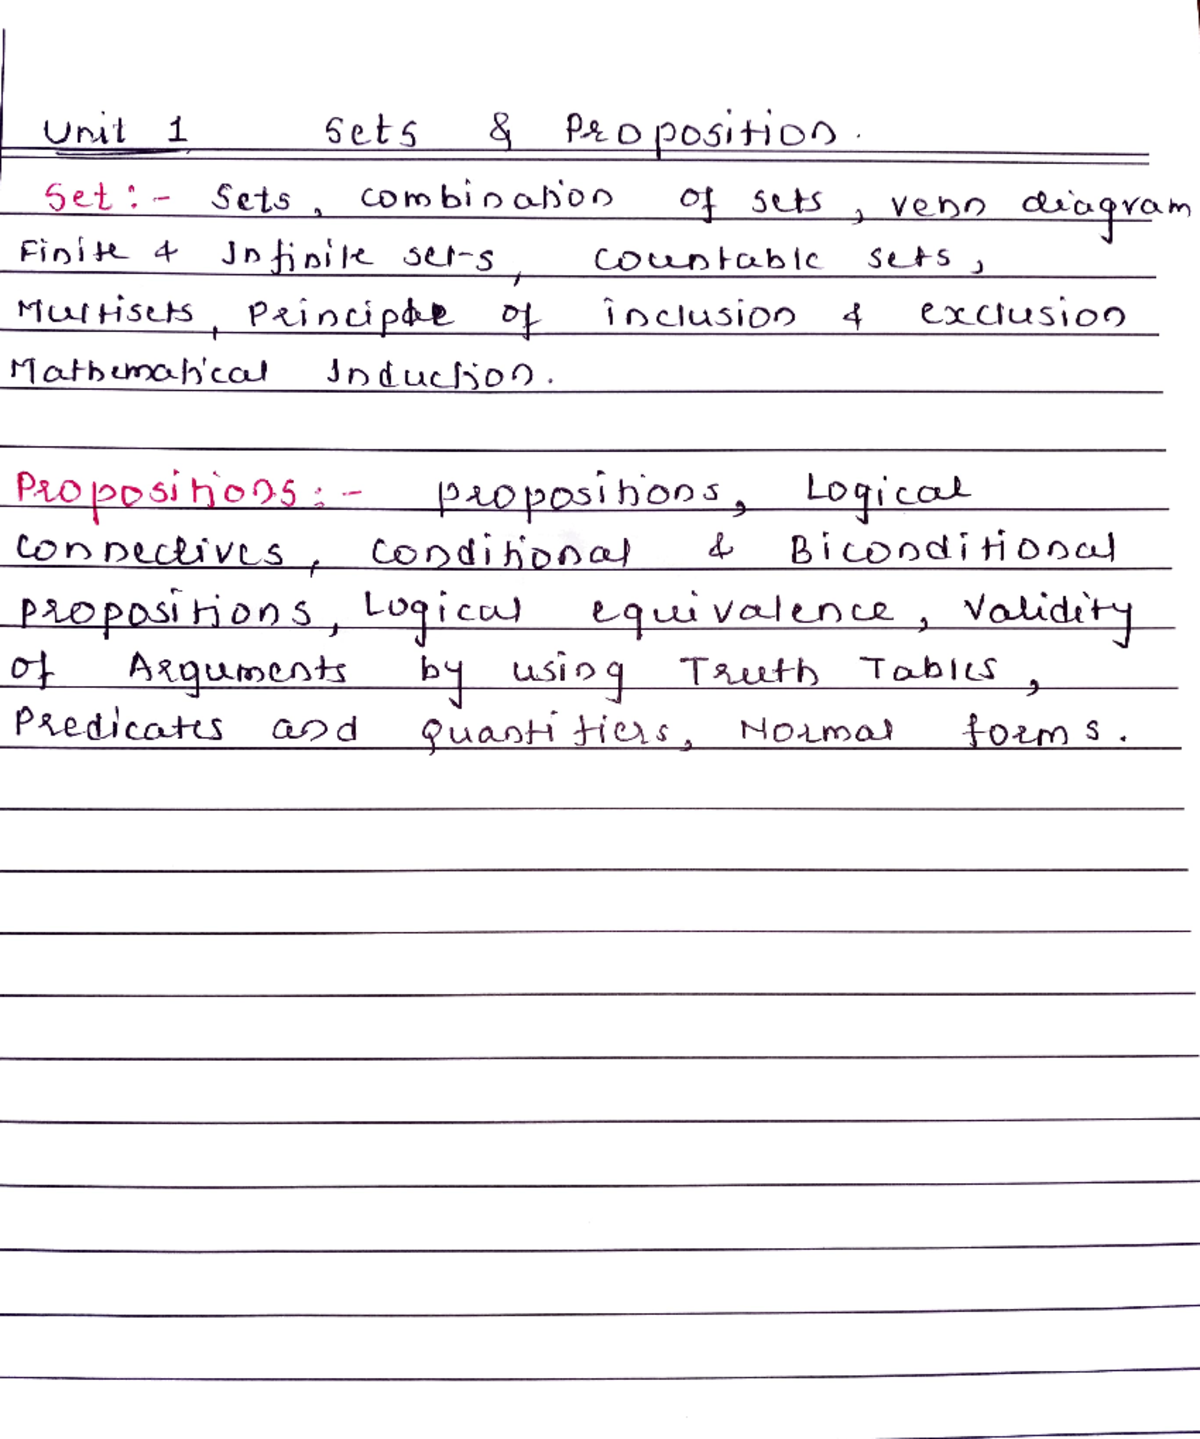 Unit 1 Sets & Proposition.
Set :- Sets, combination of sets, venn diagram
Finite & Infinite sets, countable sets,
Multisets, Principle of inclusion & exclusion
Mathematical Induction.
Propositions :- propositions, Logical
connectives, conditional & Biconditional
propositions, Logical equivalence, Validity
of Arguments by using Truth Tables,
Predicates and Quantifiers, Normal forms.